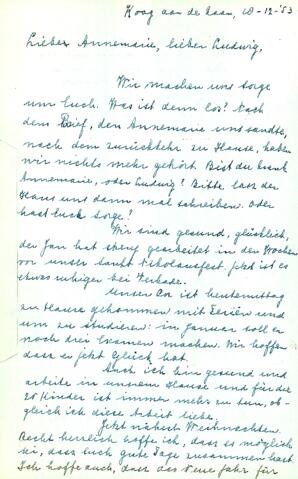 Koog aan de Zaan, 10-12-'53
Lieber Annemarie, lieber Ludwig,
Wir machen uns Sorge
um Euch. Was ist denn los? Nach
dem Brief, den Annemarie uns sandte,
nach dem zurückkehr zu Hause, haben
wir nichts mehr gehört. Bist du krank
Annemarie, oder Ludwig? Bitte lass der
Haus uns dann mal schreiben. Oder
hast Euch Sorge?
Wir sind gesund, glücklich,
der Jan hat streng gearbeitet in den Wochen
vor unser Sankt Nikolausfest. Jetzt ist es
etwas ruhiger bei Verkade.
Unser Cor ist heutemittag
zu Hause gekommen mit Ferien und
um zu studieren: im Januar soll er
noch drei Examen machen. Wir hoffen
dass er jetzt Glück hat.
Auch ich bin gesund und
arbeite in unserem Hause und für die
20 Kinder ist immer mehr zu tun, ob-
gleich ich diese Arbeit liebe.
Jetzt nähert Weihnachten.
Recht herzlich hoffe ich, dass es möglich
ist, dass Euch gute Tage zusammen hast
Ich hoffe auch, dass das Neue Jahr für